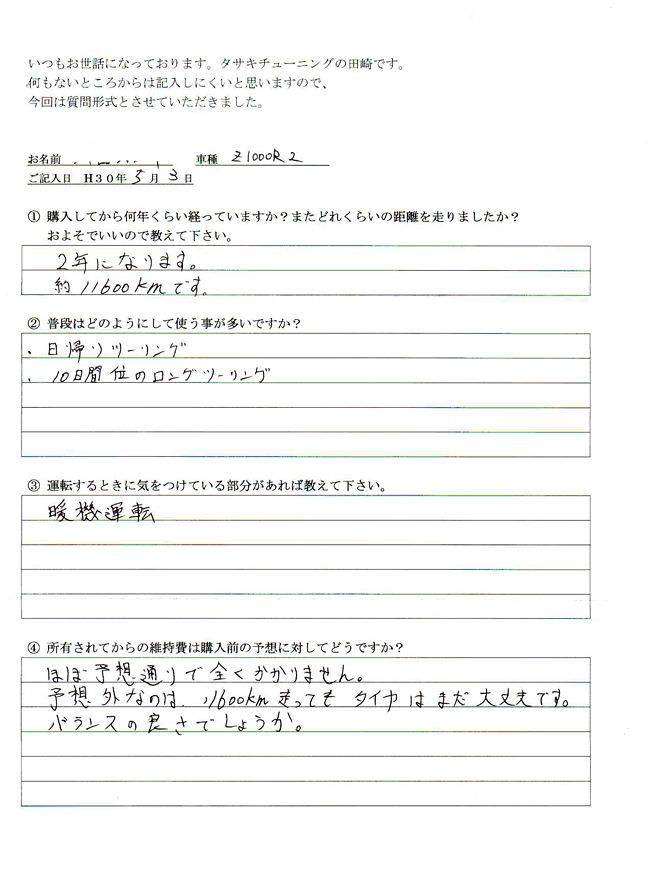 いつもお世話になっております。タサキチューニングの田崎です。
何もないところからは記入しにくいと思いますので、
今回は質問形式とさせていただきました。
お名前 車種 Z1000R2
ご記入日 H30年5月3日
① 購入してから何年くらい経っていますか？またどれくらいの距離を走りましたか？
およそでいいので教えて下さい。
2年になります。
約11600kmです。
② 普段はどのようにして使う事が多いですか？
・日帰りツーリング
・10日間位のロングツーリング
③ 運転するときに気をつけている部分があれば教えて下さい。
暖機運転
④ 所有されてからの維持費は購入前の予想に対してどうですか？
ほぼ予想通りで全くかかりません。
予想外なのは、11600km走ってもタイヤはまだ大丈夫です。
バランスの良さでしょうか。